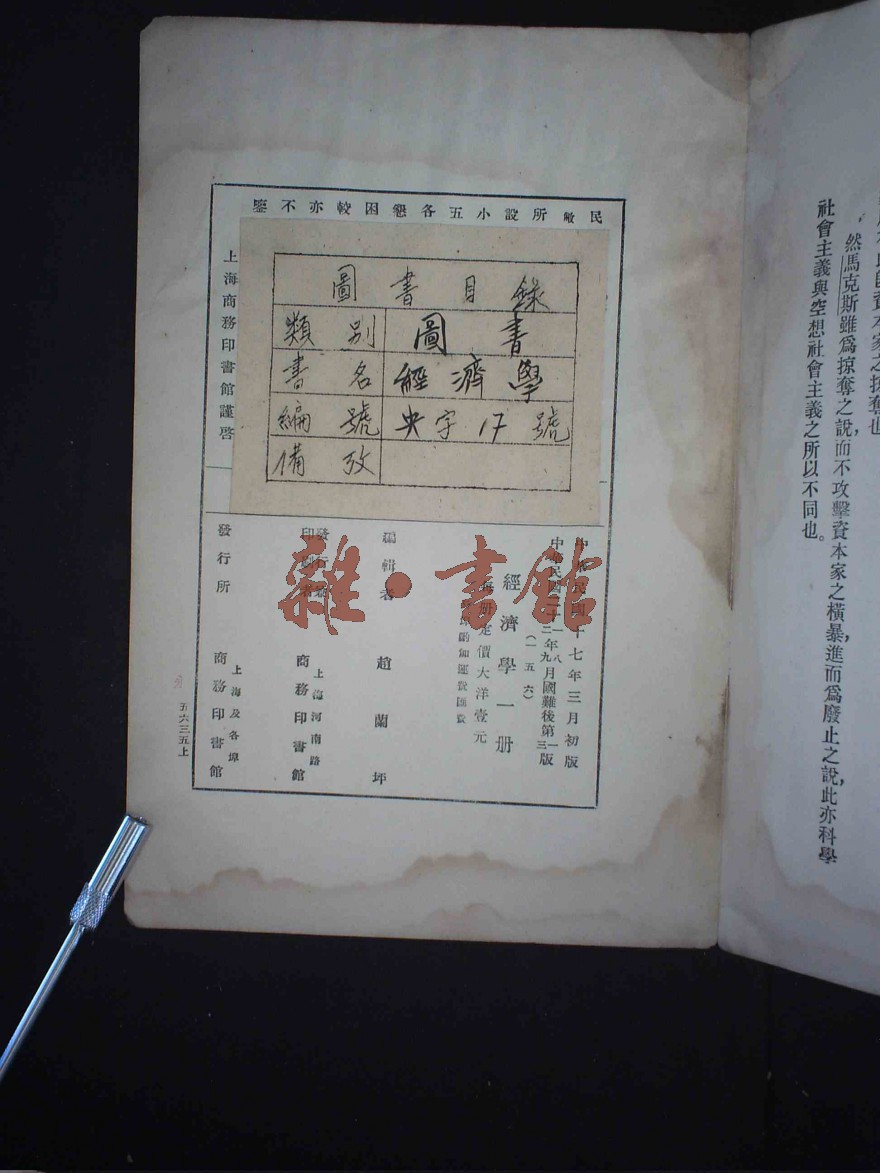 社會主義與空想社會主義之所以不同也。
然馬克斯雖爲掠奪之說,而不攻擊資本家之橫暴,進而爲廢止之說,此亦科學
民敝所設小五各懇困較亦不鑒
上海商務印書館謹啓
圖書目錄
類別 圖書
書名 經濟學
編號 央字17號
備攷
中華民國十七年三月初版
中華民國二十二年九月國難後第一版
(一五六)
經濟學一册
每册定價大洋壹元
外埠酌加運費匯費
編輯者 趙蘭坪
發行兼印刷者 上海河南路 商務印書館
發行所 上海及各埠 商務印書館
五六三五上
雜·書館